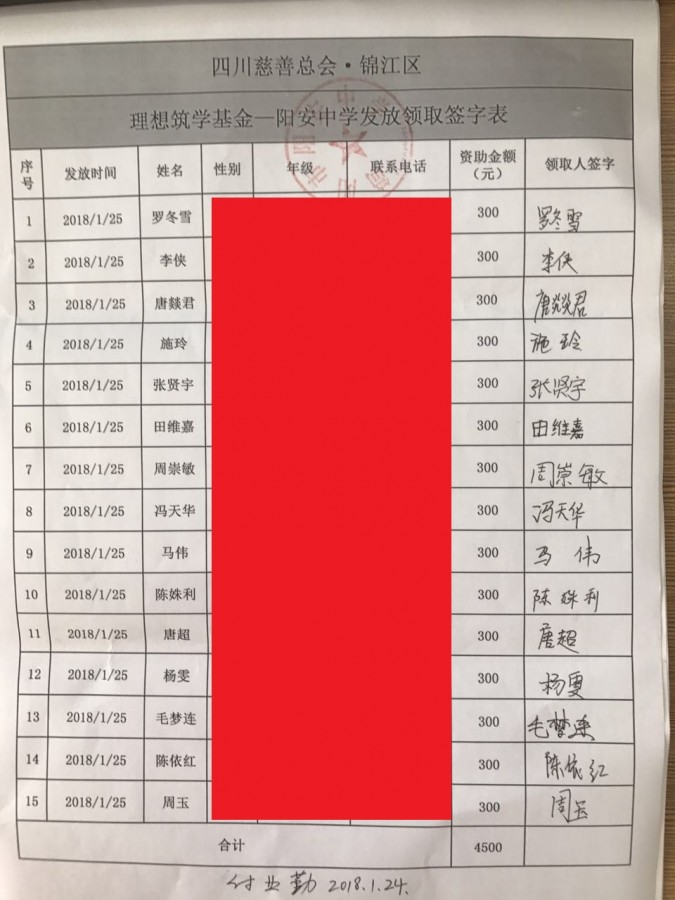 四川慈善总会·锦江区
理想筑学基金—阳安中学发放领取签字表
序号 发放时间 姓名 性别 年级 联系电话 资助金额（元） 领取人签字
1 2018/1/25 罗冬雪 300 罗冬雪
2 2018/1/25 李侠 300 李侠
3 2018/1/25 唐燚君 300 唐燚君
4 2018/1/25 施玲 300 施玲
5 2018/1/25 张贤宇 300 张贤宇
6 2018/1/25 田维嘉 300 田维嘉
7 2018/1/25 周崇敏 300 周崇敏
8 2018/1/25 冯天华 300 冯天华
9 2018/1/25 马伟 300 马伟
10 2018/1/25 陈姝利 300 陈姝利
11 2018/1/25 唐超 300 唐超
12 2018/1/25 杨雯 300 杨雯
13 2018/1/25 毛梦连 300 毛梦连
14 2018/1/25 陈依红 300 陈依红
15 2018/1/25 周玉 300 周玉
合计 4500
付业勤 2018.1.24.